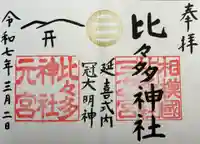 奉拝
比々多神社
延喜式内
冠大明神
令和七年三月二日
相模國
三之宮
比々多
神社
元宮